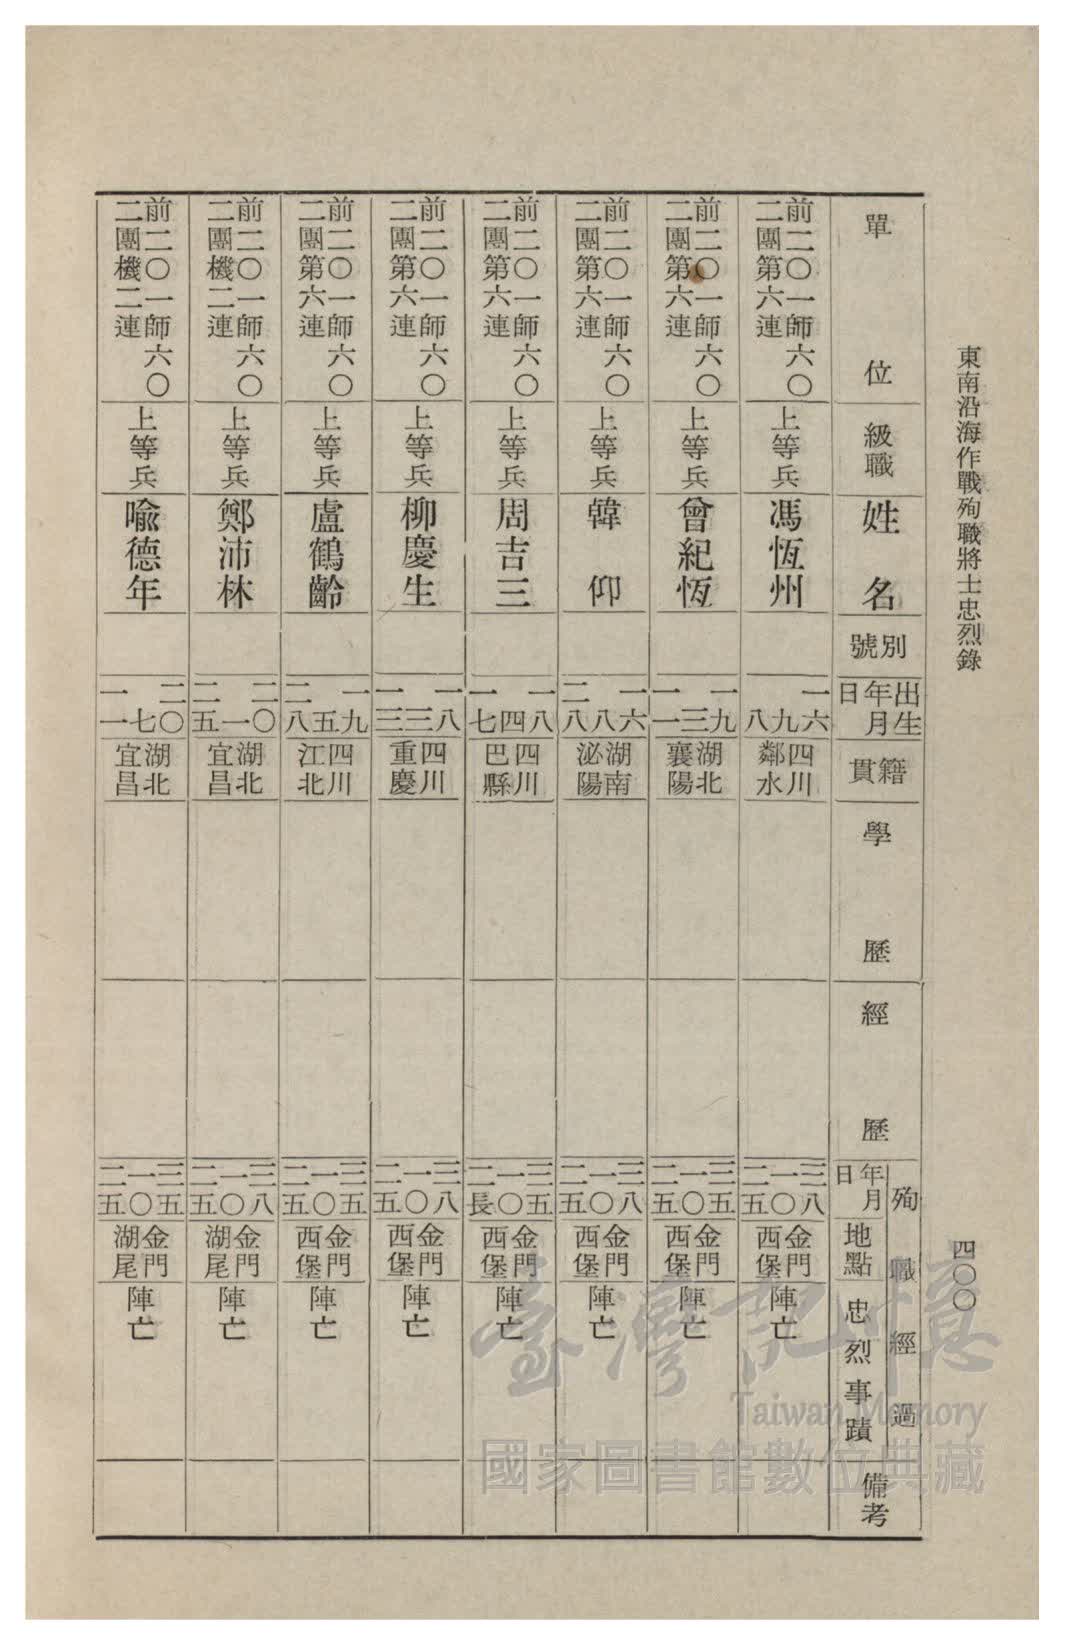 東南沿海作戰殉職將士忠烈錄
四〇〇
單位
級職
姓名
別號
出生
年月
日
籍貫
學歷
經歷
殉職經過
年月
日
地點
忠烈事蹟
備考
前二〇一師六〇
二團第六連
上等兵
馮恆州
一六
九
八
四川
鄰水
三八
一〇
二五
金門
西堡
陣亡
前二〇一師六〇
二團第六連
上等兵
曾紀恆
一九
三
一一
湖北
襄陽
三五
一〇
二五
金門
西堡
陣亡
前二〇一師六〇
二團第六連
上等兵
韓仰
一六
八
二八
湖南
泌陽
三八
一〇
二五
金門
西堡
陣亡
前二〇一師六〇
二團第六連
上等兵
周吉三
一八
四
一七
四川
巴縣
三五
一〇
二長
金門
西堡
陣亡
前二〇一師六〇
二團第六連
上等兵
柳慶生
一八
三
一三
四川
重慶
三八
一〇
二五
金門
西堡
陣亡
前二〇一師六〇
二團第六連
上等兵
盧鶴齡
一九
五
二八
四川
江北
三五
一〇
二五
金門
西堡
陣亡
前二〇一師六〇
二團機二連
上等兵
鄭沛林
二〇
一
二五
湖北
宜昌
三八
一〇
二五
金門
湖尾
陣亡
前二〇一師六〇
二團機二連
上等兵
喻德年
二〇
七
一一
湖北
宜昌
三五
一〇
二五
金門
湖尾
陣亡
臺灣記憶
Taiwan Memory
國家圖書館數位典藏